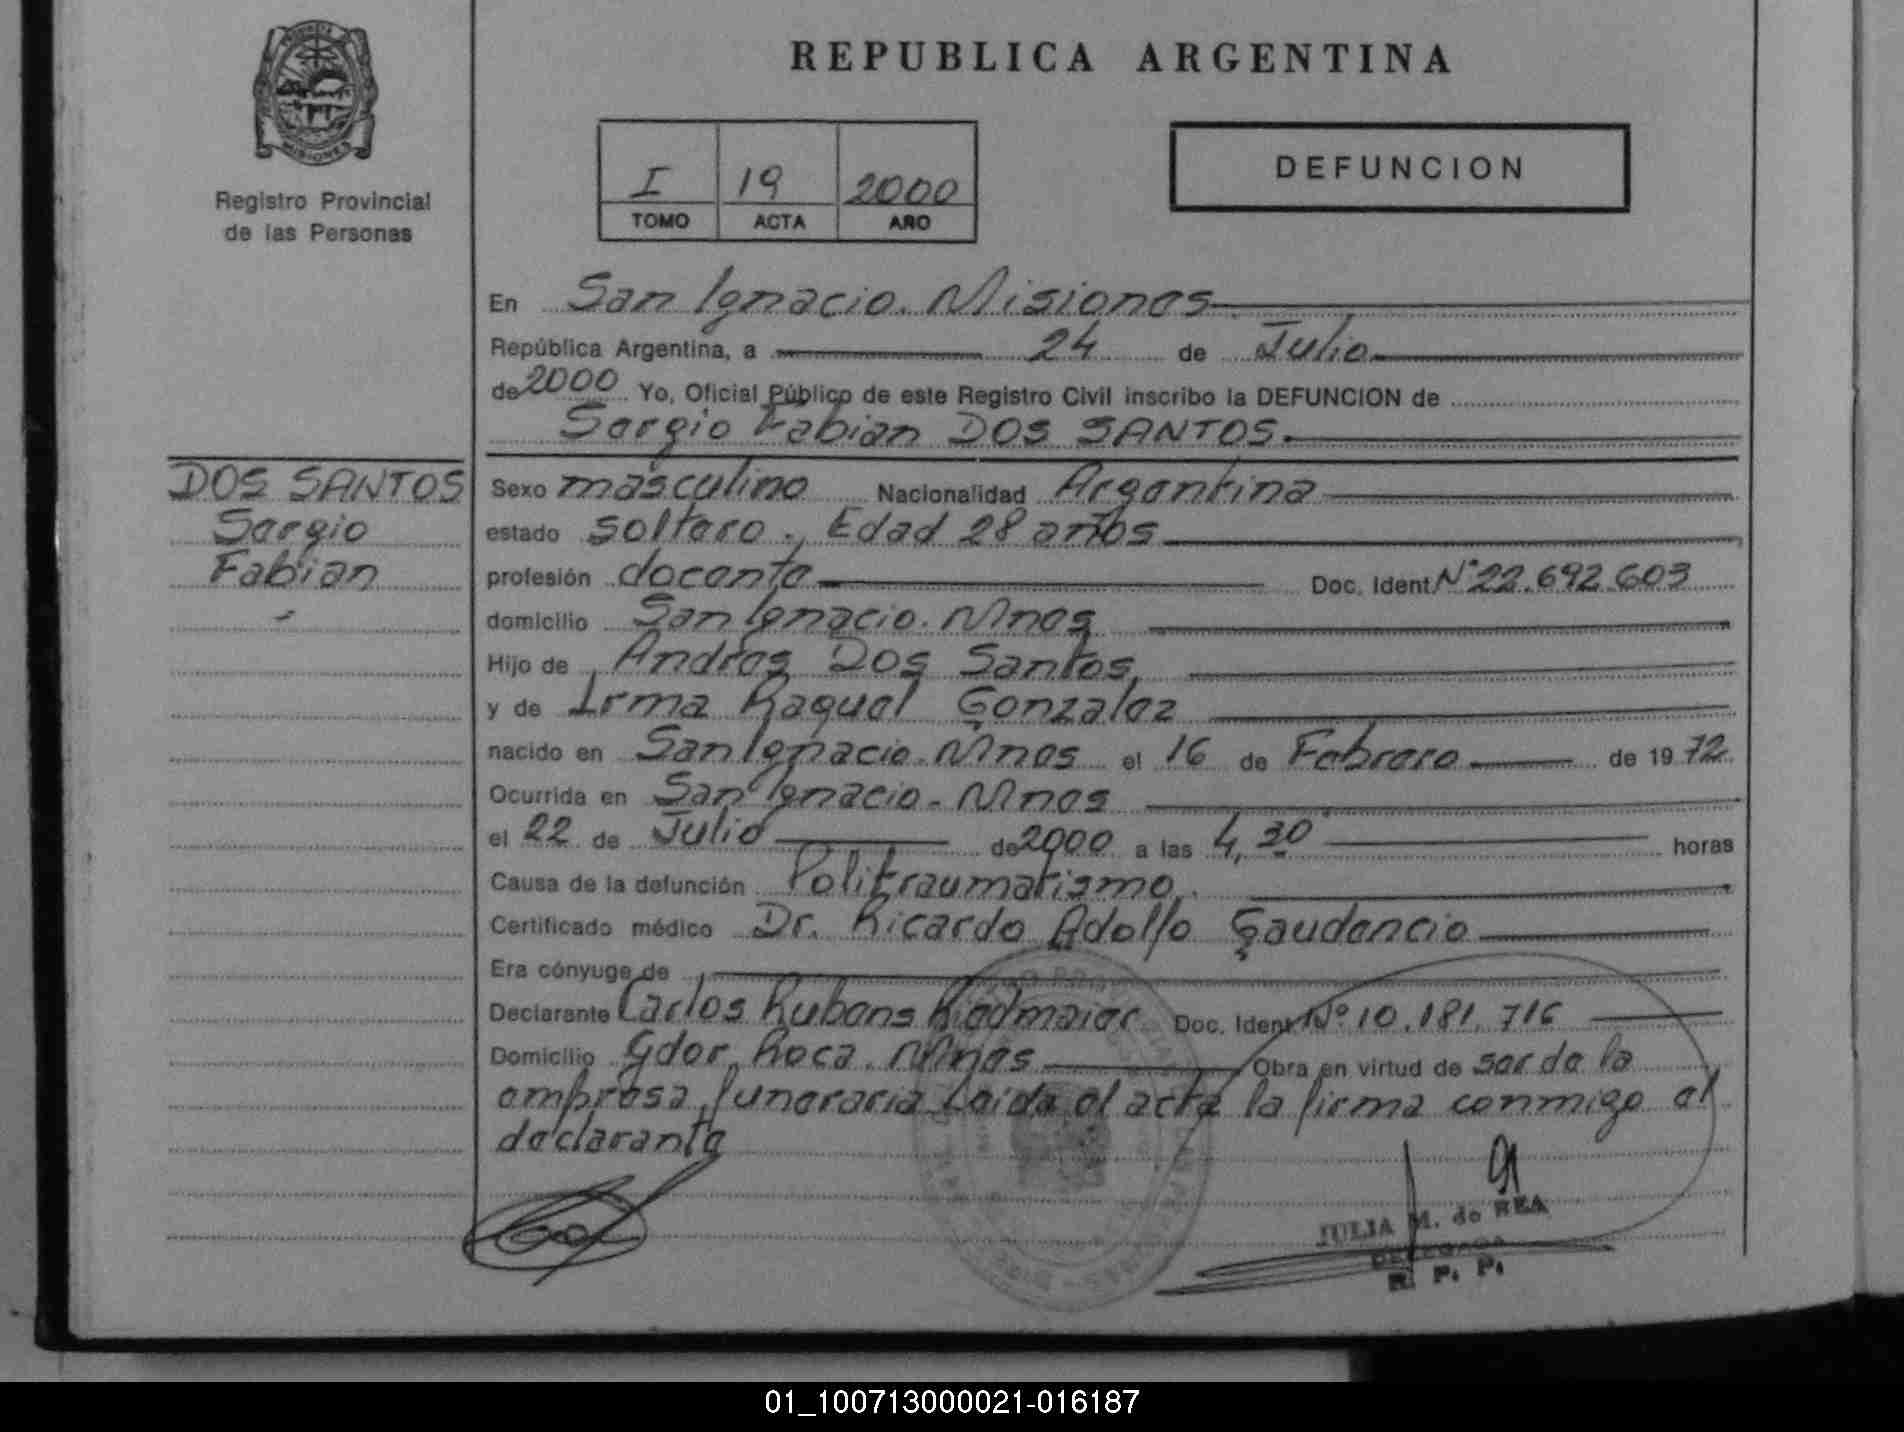 PROVINCIA DE
MISIONES
Registro Provincial
de las Personas
REPUBLICA ARGENTINA
I 19 2000
TOMO ACTA AÑO
DEFUNCION
En San Ignacio. Misiones
República Argentina, a 24 de Julio
de 2000 Yo, Oficial Público de este Registro Civil inscribo la DEFUNCION de
Sergio Fabian DOS SANTOS.
DOS SANTOS
Sergio
Fabian
Sexo masculino Nacionalidad Argentina
estado soltero. Edad 28 años
profesión docente Doc. Ident. Nº 22.692.603
domicilio San Ignacio. Mnes
Hijo de Andres Dos Santos
y de Irma Raquel Gonzalez
nacido en San Ignacio. Mnes el 16 de Febrero de 1972
Ocurrida en San Ignacio. Mnes
el 22 de Julio de 2000 a las 4,30 horas
Causa de la defunción Politraumatismo.
Certificado médico Dr. Ricardo Adolfo Gaudencio
Era cónyuge de
Declarante Carlos Rubens Riedmaier Doc. Ident. Nº 10.181.716
Domicilio Gdor. Roca. Mnes Obra en virtud de ser de la
empresa funeraria Leida el acta la firma conmigo el
declarante
JULIA M. de REA
DELEGADA
R. P. P.
01_100713000021-016187